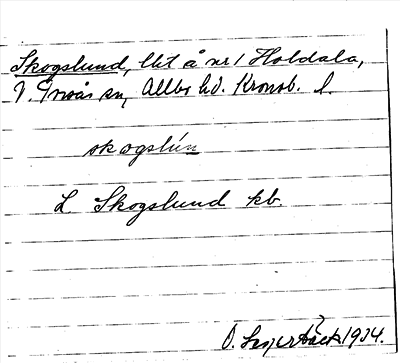 Skogslund, lht å nr 1 Holdala,
V. Torsås sn, Allbo hd. Kronob. l.
skogslún
L Skogslund kb.
D. Lagerbäck 1934.